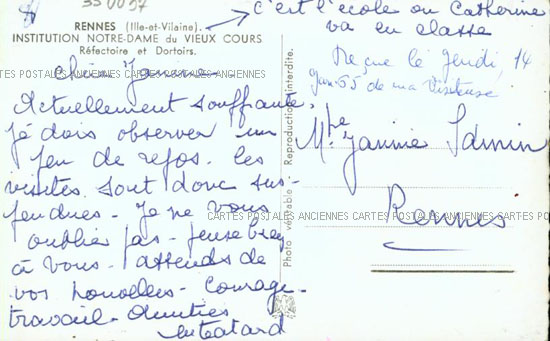 350097
RENNES (Ille-et-Vilaine).
INSTITUTION NOTRE-DAME du VIEUX COURS
Réfectoire et Dortoirs.
c'est l'école où Catherine
va en classe
Reçue le jeudi 14
Jan. 65 de ma visiteuse
chère Jeanine
Actuellement souffante,
je dois observer un
peu de repos. les
visites sont donc sus-
pendues - Je ne vous
oublie pas - pense bien
à vous - attends de
vos nouvelles - Courage -
travail - Amitiés
Mlle Jeannine
Rennes
Photo véritable - Reproduction interdite.
CARTES POSTALES ANCIENNES CARTES POSTALES ANCIENNES
CARTES POSTALES ANCIENNES CARTES POSTALES ANCIENNES